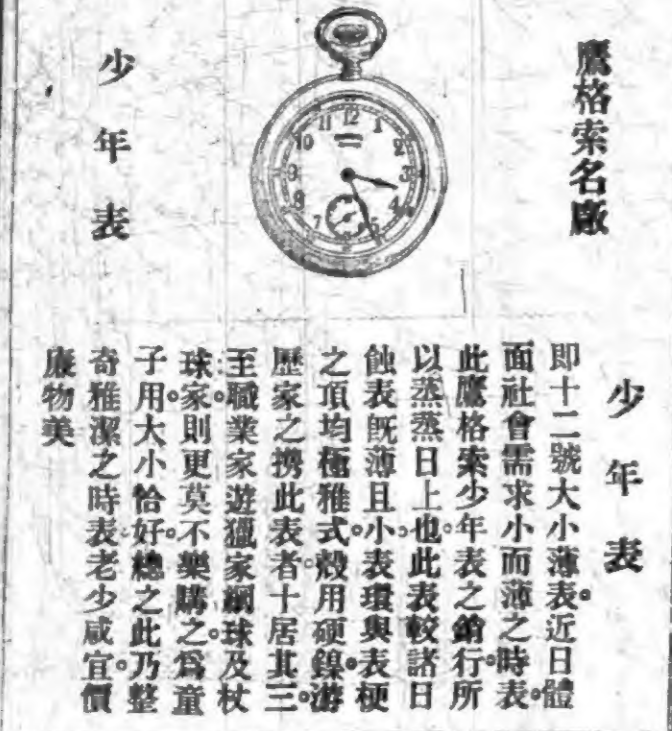 鷹格索名廠
少年表
12
1
2
3
4
7
8
9
10
11
少年表
即十二號大小薄表。近日體
面社會需求小而薄之時表。
此鷹格索少年表之銷行。所
以蒸蒸日上也。此表較諸日
蝕表既薄且小。表環與表梗
之頂均極雅式。殼用硬鎳。游
歷家之携此表者。十居其三。
至職業家遊獵家網球及杖
球家。則更莫不樂購之。爲童
子用。大小恰好。總之此乃整
奇雅潔之時表老少咸宜。價
廉物美